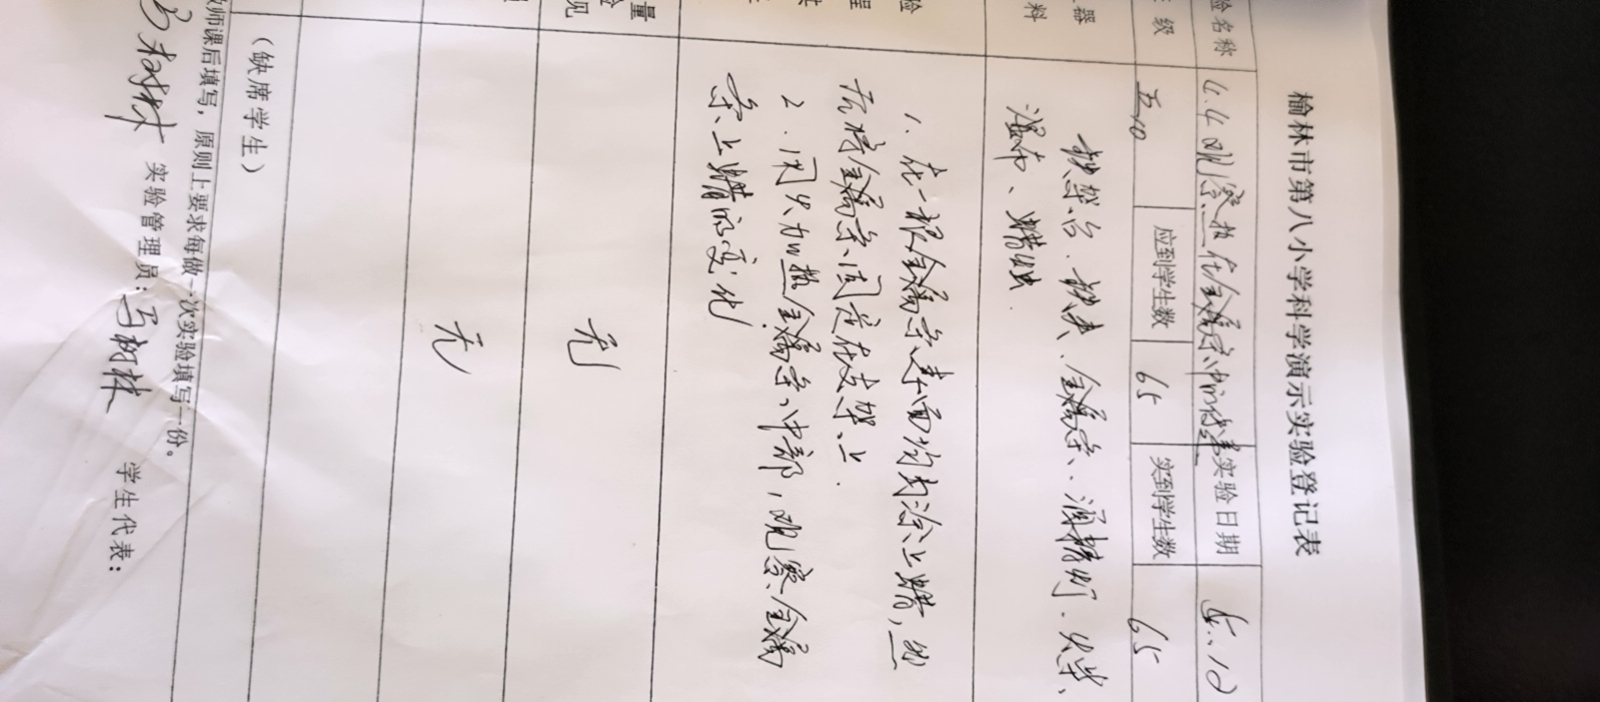 榆林市第八小学科学演示实验登记表
验名称 4.4观察热在金属条中的传递 实验日期 5.10
级 五10 应到学生数 65 实到学生数 65
器 铁架台、铁夹、金属条、酒精灯、火柴、
料 湿布、蜡烛
验 1. 在一根金属条表面均匀涂上蜡,
程 将金属条固定在支架上.
2. 用火加热金属条中部,观察金属
条上蜡的变化
量 无
见
无
(缺席学生)
师课后填写,原则上要求每做一次实验填写一份。
马树林 实验管理员:马树林 学生代表: